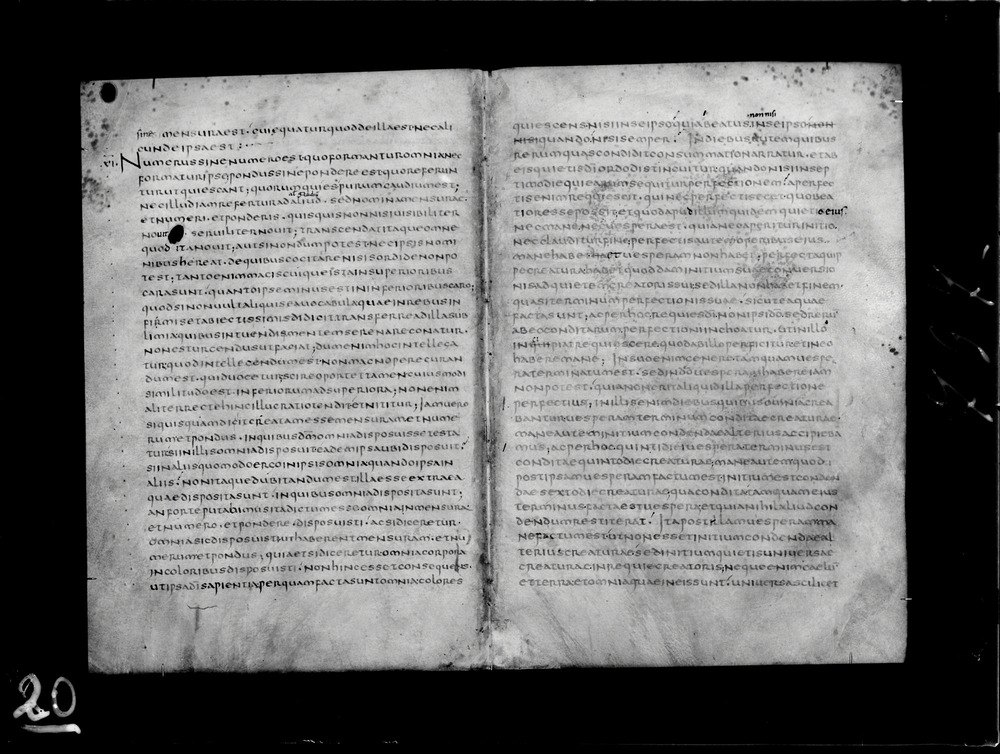 sine mensura est · cui seq̄uatur quod de illa est nec ali
cunde ipsa est
VI · Numerus sine numero est quo formantur omnia nec
formatur ipse pondus sine pondere est quo referun
tur ut quiescant; quorum quies purum gaudium est;
nec illud iam refertur ad aliud · sed nomina mensurae
et numeri · et ponderis · quisquis non nisi visibiliter
novit · serviliter novit; transcendat itaque omne
quod ita novit; aut si nondum potest nec ipsis nomi
nibus hereat · de quibus cogitare nisi sordide non po
test; tanto enim magis cuique ista in superioribus
cara sunt · quanto ipse minus est in inferioribus caro;
quod si non vult aliquis ea vocabula quae in rebus in
firmis et abiectissimis didicit transferre ad illa sub
limia quibus intuendis mentem serenare conatur ·
non est urgendus ut faciat; dum enim hoc intellega
tur quod intellegendum est non magnopere curan
dum est · qui d vocetur scire oportet tamen cuiusmodi
similitudo est inferiorum ad superiora; non enim
aliter recte hinc illuc ratio tendit et nititur; Iam vero
si quisquam dicit creatam esse mensuram et nume
rum et pondus · in quibus dm omnia disposuisse testa
tur si in illis omnia disposuit eadem ipsa ubi disposuit
si in aliis quomodo ergo in ipsis omnia quando ipsa in
aliis non itaque dubitandum est illa esse extra ea
quae disposita sunt · in quibus omnia disposita sunt;
an forte putabimus ita dictum esse omnia in mensura
et numero · et pondere disposuisti · ac si diceretur ·
omnia sic disposuisti ut haberent mensuram · et nu
merum et pondus; quia et si diceretur omnia corpora
in coloribus disposuisti · non hinc esset consequens ·
ut ipsa di sapientia per quam facta sunt omnia colores
quiescens nisi in se ipso quia beatus
non nisi
nisi quando nisi semper In diebus autem quibus
rerum quas condidit consummatio narratur · et ab
eis quietis di ordo distinguitur quando nisi in sep
timo die qui earum sequitur perfectionem a perfec
tis enim requiescit · qui nec perfectis eget quo bea
et cius
nec mane nec vespera est · quia nec aperitur initio
nec clauditur fine perfectis autem operibus eius
mane habet et vesperam non habet; perfecta quip
pe creatura habet quoddam initium suae conversio
nis ad quietem creatoris sui sed illa non habet finem
quasi terminum perfectionis suae · sicut ea quae
facta sunt; ac per hoc requies di non ipsi do sed rerum
ab eo conditarum perfectioni inchoatur · ut in illo
incipiat requiescere quod ab illo perficitur et in eo
habere mane; In suo enim genere tamquam vespe
ra terminatum est · sed in do vesperam habere iam
non potest · quia non erit aliquid illa perfectione
perfectius; in illis enim diebus quibus omnia crea
bantur vesperam terminum conditae creaturae ·
mane autem initium condendae alterius accipieba
mus; ac per hoc quinti diei vespera terminus est
conditae quinto die creaturae; mane autem quod
post ipsam vesperam factum est initium est conden
dae sexto die creaturae; qua condita tamquam eius
terminus facta est vespera et quia nihil aliud con
dendum restiterat Ita post illam vesperam ma
ne factum est ut non esset initium condendae al
terius creaturae sed initium quietis universae
creaturae in requie creatoris; neque enim caelum
et terra et omnia quae in eis sunt universa scilicet
20